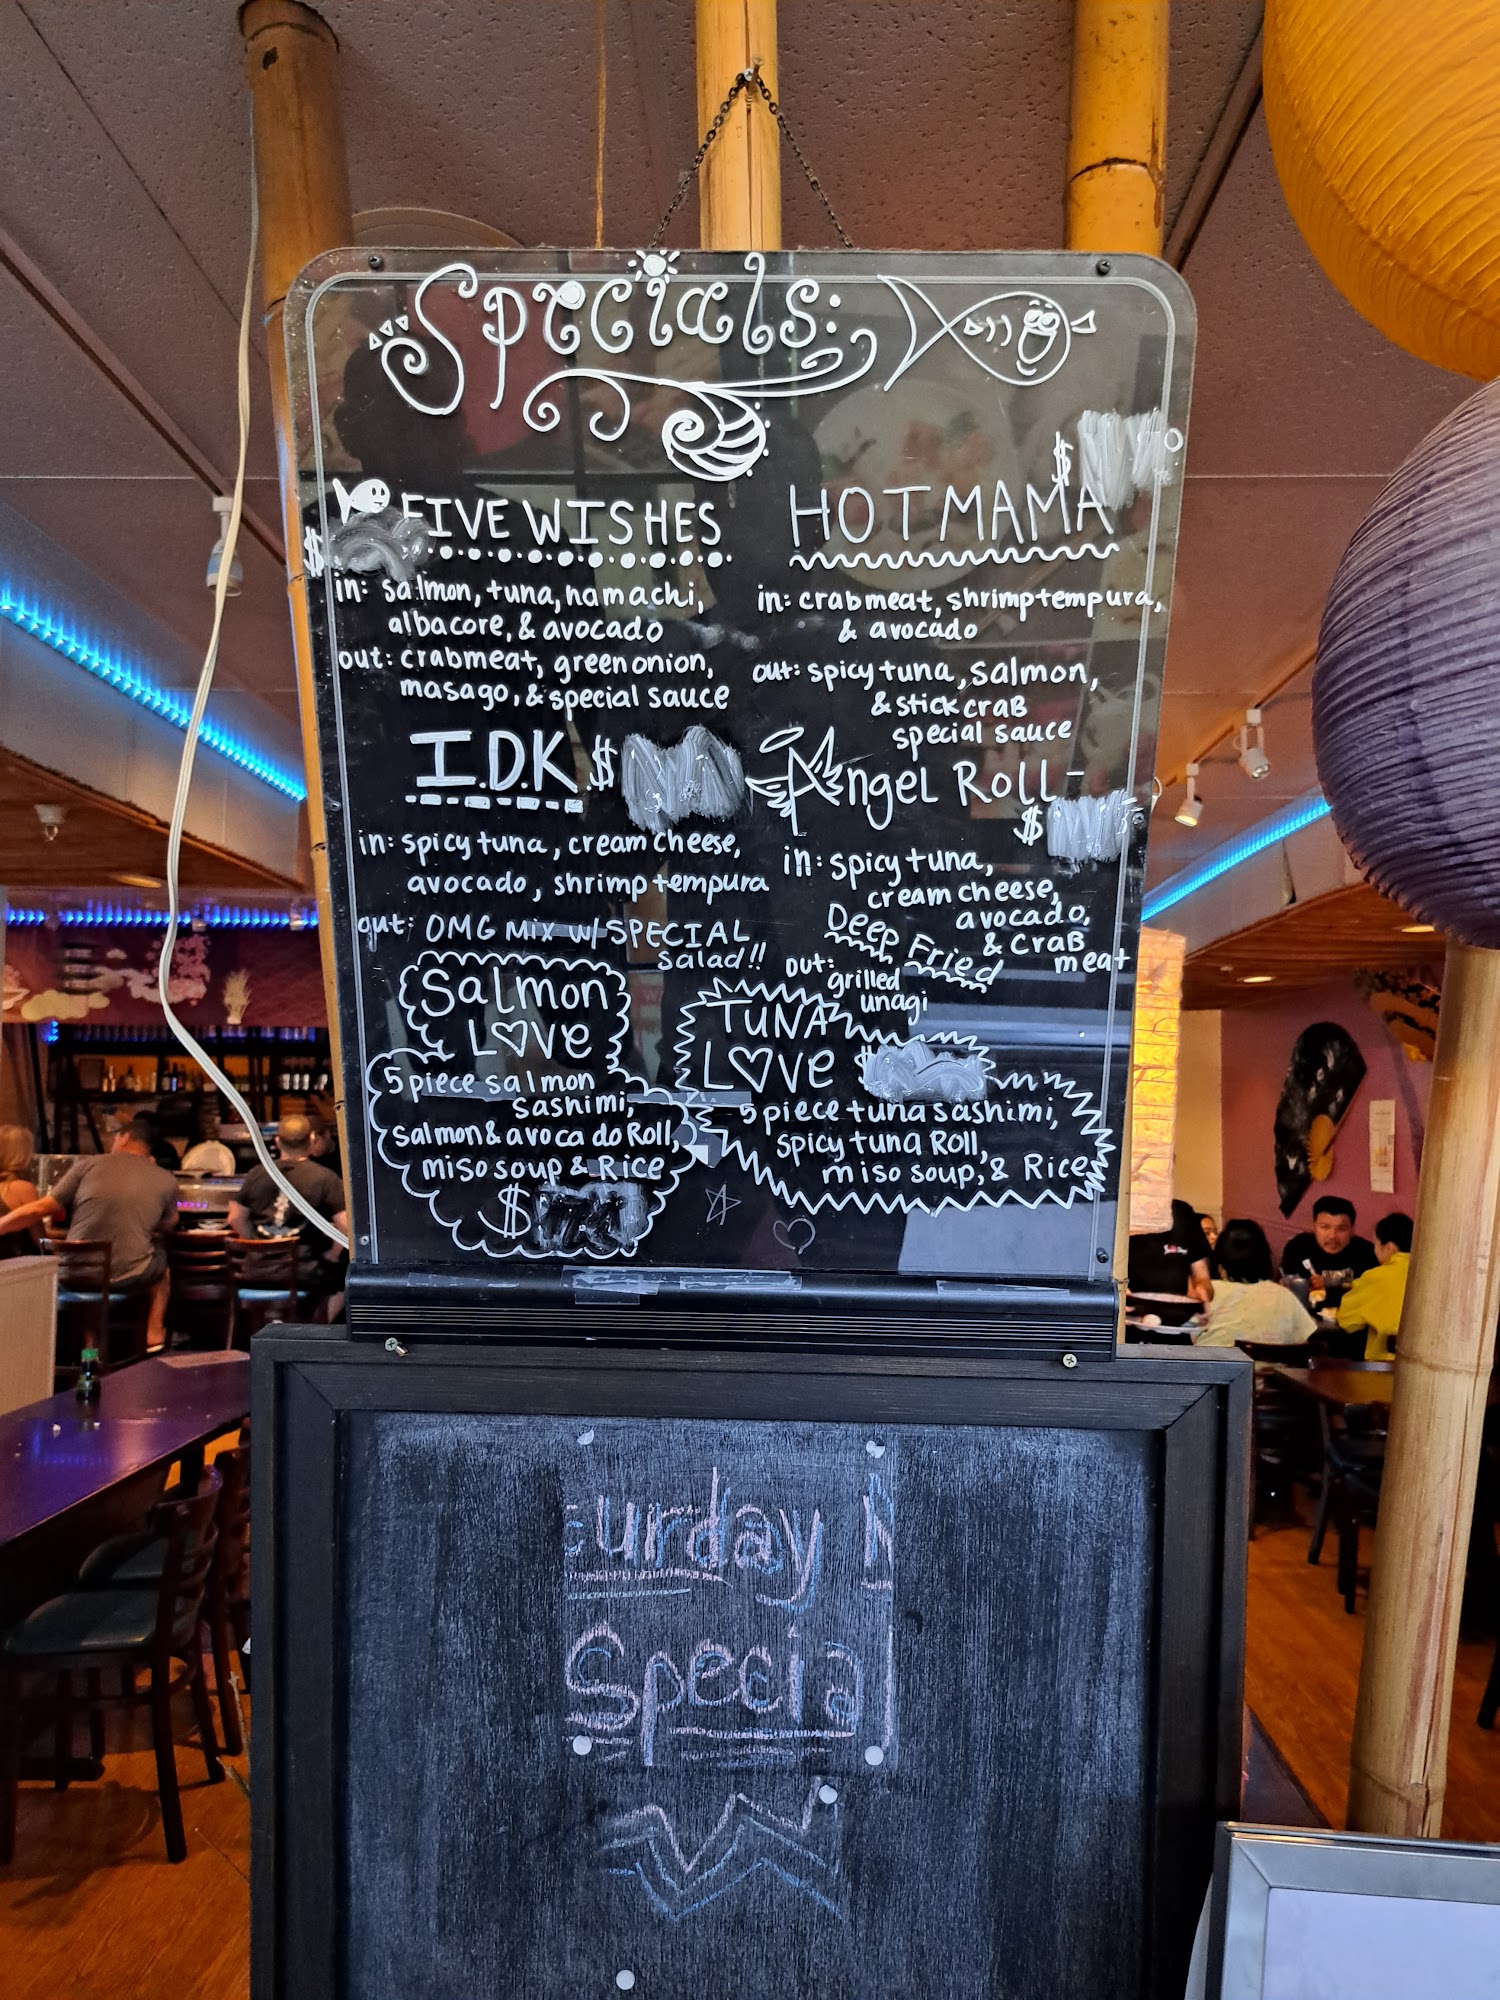 Specials:
FIVE WISHES
$
in: salmon, tuna, hamachi,
albacore, & avocado
out: crabmeat, green onion,
masago, & special sauce
I.D.K. $
in: spicy tuna, cream cheese,
avocado, shrimp tempura
out: OMG MIX W/ SPECIAL
salad!!
Salmon
L♡ve
5 piece salmon
sashimi,
salmon & avocado Roll,
miso soup & Rice
$
$
HOT MAMA
in: crabmeat, shrimp tempura,
& avocado
out: spicy tuna, salmon,
& stick craB
special sauce
Angel Roll -
$
in: spicy tuna,
cream cheese,
avocado,
& craB
meat
Deep Fried
out:
grilled
unagi
TUNA
L♡ve $
5 piece tuna sashimi,
spicy tuna Roll,
miso soup, & Rice
urday
Special